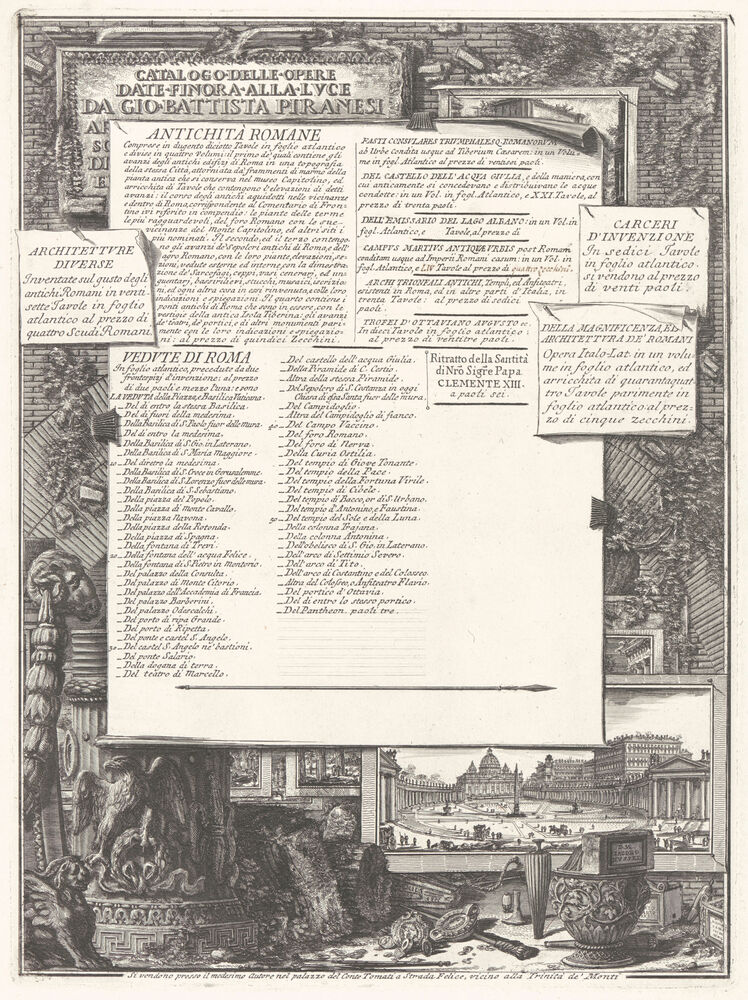 CATALOGO·DELLE·OPERE
DATE·FINORA·ALLA·LVCE
DA GIO·BATTISTA PIRANESI
ANTICHITÀ ROMANE
Comprese in dugento diciotto Tavole in foglio atlantico
e divise in quattro Volumi: il primo de' quali contiene gli
avanzi degli antichi edifizj di Roma in una topografia
della stessa Città, attorniata da frammenti di marmo della
pianta antica che si conserva nel museo Capitolino, ed
arricchita di Tavole che contengono l'elevazioni di detti
avanzi: il corso degli antichi aquidotti nelle vicinanze
e dentro di Roma, corrispondente al Comentario di Fron-
tino ivi riferito in compendio: le piante delle terme
le più ragguardevoli, del foro Romano con le cire-
vicinanze del Monte Capitolino, ed altri siti i
più nominati. Il secondo, ed il terzo contengo-
no gli avanzi de' Sepolcri antichi di Roma, e dell'
agro Romano, con le loro piante, elevazioni, se-
zioni, vedute esterne ed interne, con la dimostra-
zione de' Sarcofagi, ceppi, vasi cenerarj, ed un-
guentarj, bassirilievi, stucchi, musaici, iscrizio-
ni, ed ogni altra cosa in essi rinvenuta, e colle loro
indicazioni e spiegazioni. Il quarto contiene i
ponti antichi di Roma che sono in essere, con le
vestigie della antica Isola Tiberina: gli avanzi
de' teatri, de' portici, e di altri monumenti pari-
mente con le loro indicazioni e spiegazio-
ni: al prezzo di quindici Zecchini.
FASTI CONSVLARES TRIVMPHALESQ. ROMANORVM
ab Vrbe Condita usque ad Tiberium Caesarem: in un Volu-
me in fogl. Atlantico al prezzo di ventisei paoli.
DEL CASTELLO DELL' ACQVA GIVLIA, e della maniera, con
cui anticamente si concedevano e distribuivano le acque
condotte: in un Vol. in fogl. Atlantico, e XXI. Tavole, al
prezzo di trenta paoli.
DELL' EMISSARIO DEL LAGO ALBANO: in un Vol. in
fogl. Atlantico, e Tavole, al prezzo di
CAMPVS MARTIVS ANTIQVAE VRBIS post Romam
conditam usque ad Imperii Romani casum: in un Vol. in
fogl. Atlantico, e LIV Tavole al prezzo di quattro zecchini.
ARCHI TRIONFALI ANTICHI, Tempj, ed Anfiteatri,
esistenti in Roma, ed in altre parti d'Italia, in
trenta Tavole: al prezzo di sedici
paoli.
TROFEI D'OTTAVIANO AVGVSTO ec.
In dieci Tavole in foglio Atlantico
al prezzo di ventitre paoli.
ARCHITETTVRE
DIVERSE
Inventate sul gusto degli
antichi Romani in venti-
sette Tavole in foglio
atlantico al prezzo di
quattro Scudi Romani.
CARCERI
D'INVENZIONE
In sedici Tavole
in foglio atlantico:
si vendono al prezzo
di venti paoli.
DELLA MAGNIFICENZA, ED
ARCHITETTVRA DE' ROMANI
Opera Italo-Lat. in un volu-
me in foglio atlantico, ed
arricchita di quarantaquat-
tro Tavole parimente in
foglio atlantico: al prez-
zo di cinque zecchini.
Ritratto della Santità
di Nro Sigre Papa
CLEMENTE XIII.
a paoli sei.
VEDVTE DI ROMA
In foglio atlantico, precedute da due
frontespizj d'invenzione: al prezzo
di due paoli e mezzo l'una: come
LA VEDVTA della Piazza, e Basilica Vaticana.
_Del di entro la stessa Basilica.
_Del di fuori della medesima.
_Della Basilica di S. Paolo fuor delle mura.
_Del di entro la medesima.
_Della Basilica di S. Gio. in Laterano.
_Della Basilica di S. Maria Maggiore.
10 _Del diretro la medesima.
_Della Basilica di S. Croce in Gerusalemme.
_Della Basilica di S. Lorenzo fuor delle mura.
_Della Basilica di S. Sebastiano.
_Della piazza del Popolo.
_Della piazza di Monte Cavallo.
_Della piazza Navona.
_Della piazza della Rotonda.
_Della piazza di Spagna.
_Della fontana di Trevi.
20 _Della fontana dell' acqua Felice.
_Della fontana di S. Pietro in Montorio.
_Del palazzo della Consulta.
_Del palazzo di Monte Citorio.
_Del palazzo dell' Accademia di Francia.
_Del palazzo Barberini.
_Del palazzo Odescalchi.
_Del porto di ripa Grande.
_Del porto di Ripetta.
_Del ponte e castel S. Angelo.
30 _Del castel S. Angelo ne' bastioni.
_Del ponte Salario.
_Della dogana di terra.
_Del teatro di Marcello.
_Del castello dell' acqua Giulia.
_Della Piramide di C. Cestio.
_Altra della stessa Piramide.
_Del Sepolcro di S. Costanza in oggi
Chiesa di essa Santa fuor delle mura.
_Del Campidoglio.
_Altra del Campidoglio di fianco.
40 _Del Campo Vaccino.
_Del foro Romano.
_Del foro di Nerva.
_Della Curia Ostilia.
_Del tempio di Giove Tonante.
_Del tempio della Pace.
_Del tempio della Fortuna Virile.
_Del tempio di Cibele.
_Del tempio di Bacco, or di S. Urbano.
_Del tempio d'Antonino, e Faustina.
50 _Del tempio del Sole e della Luna.
_Della colonna Trajana.
_Della colonna Antonina.
_Dell' obelisco di S. Gio. in Laterano.
_Dell' arco di Settimio Severo.
_Dell' arco di Tito.
_Dell' arco di Costantino e del Colosseo.
_Altra del Colosseo, o Anfiteatro Flavio.
_Del portico d' Ottavia.
_Del di entro lo stesso portico.
_Del Pantheon. paoli tre.
D. M.
Si vendono presso il medesimo Autore nel palazzo del Conte Tomati a Strada Felice, vicino alla Trinità de' Monti